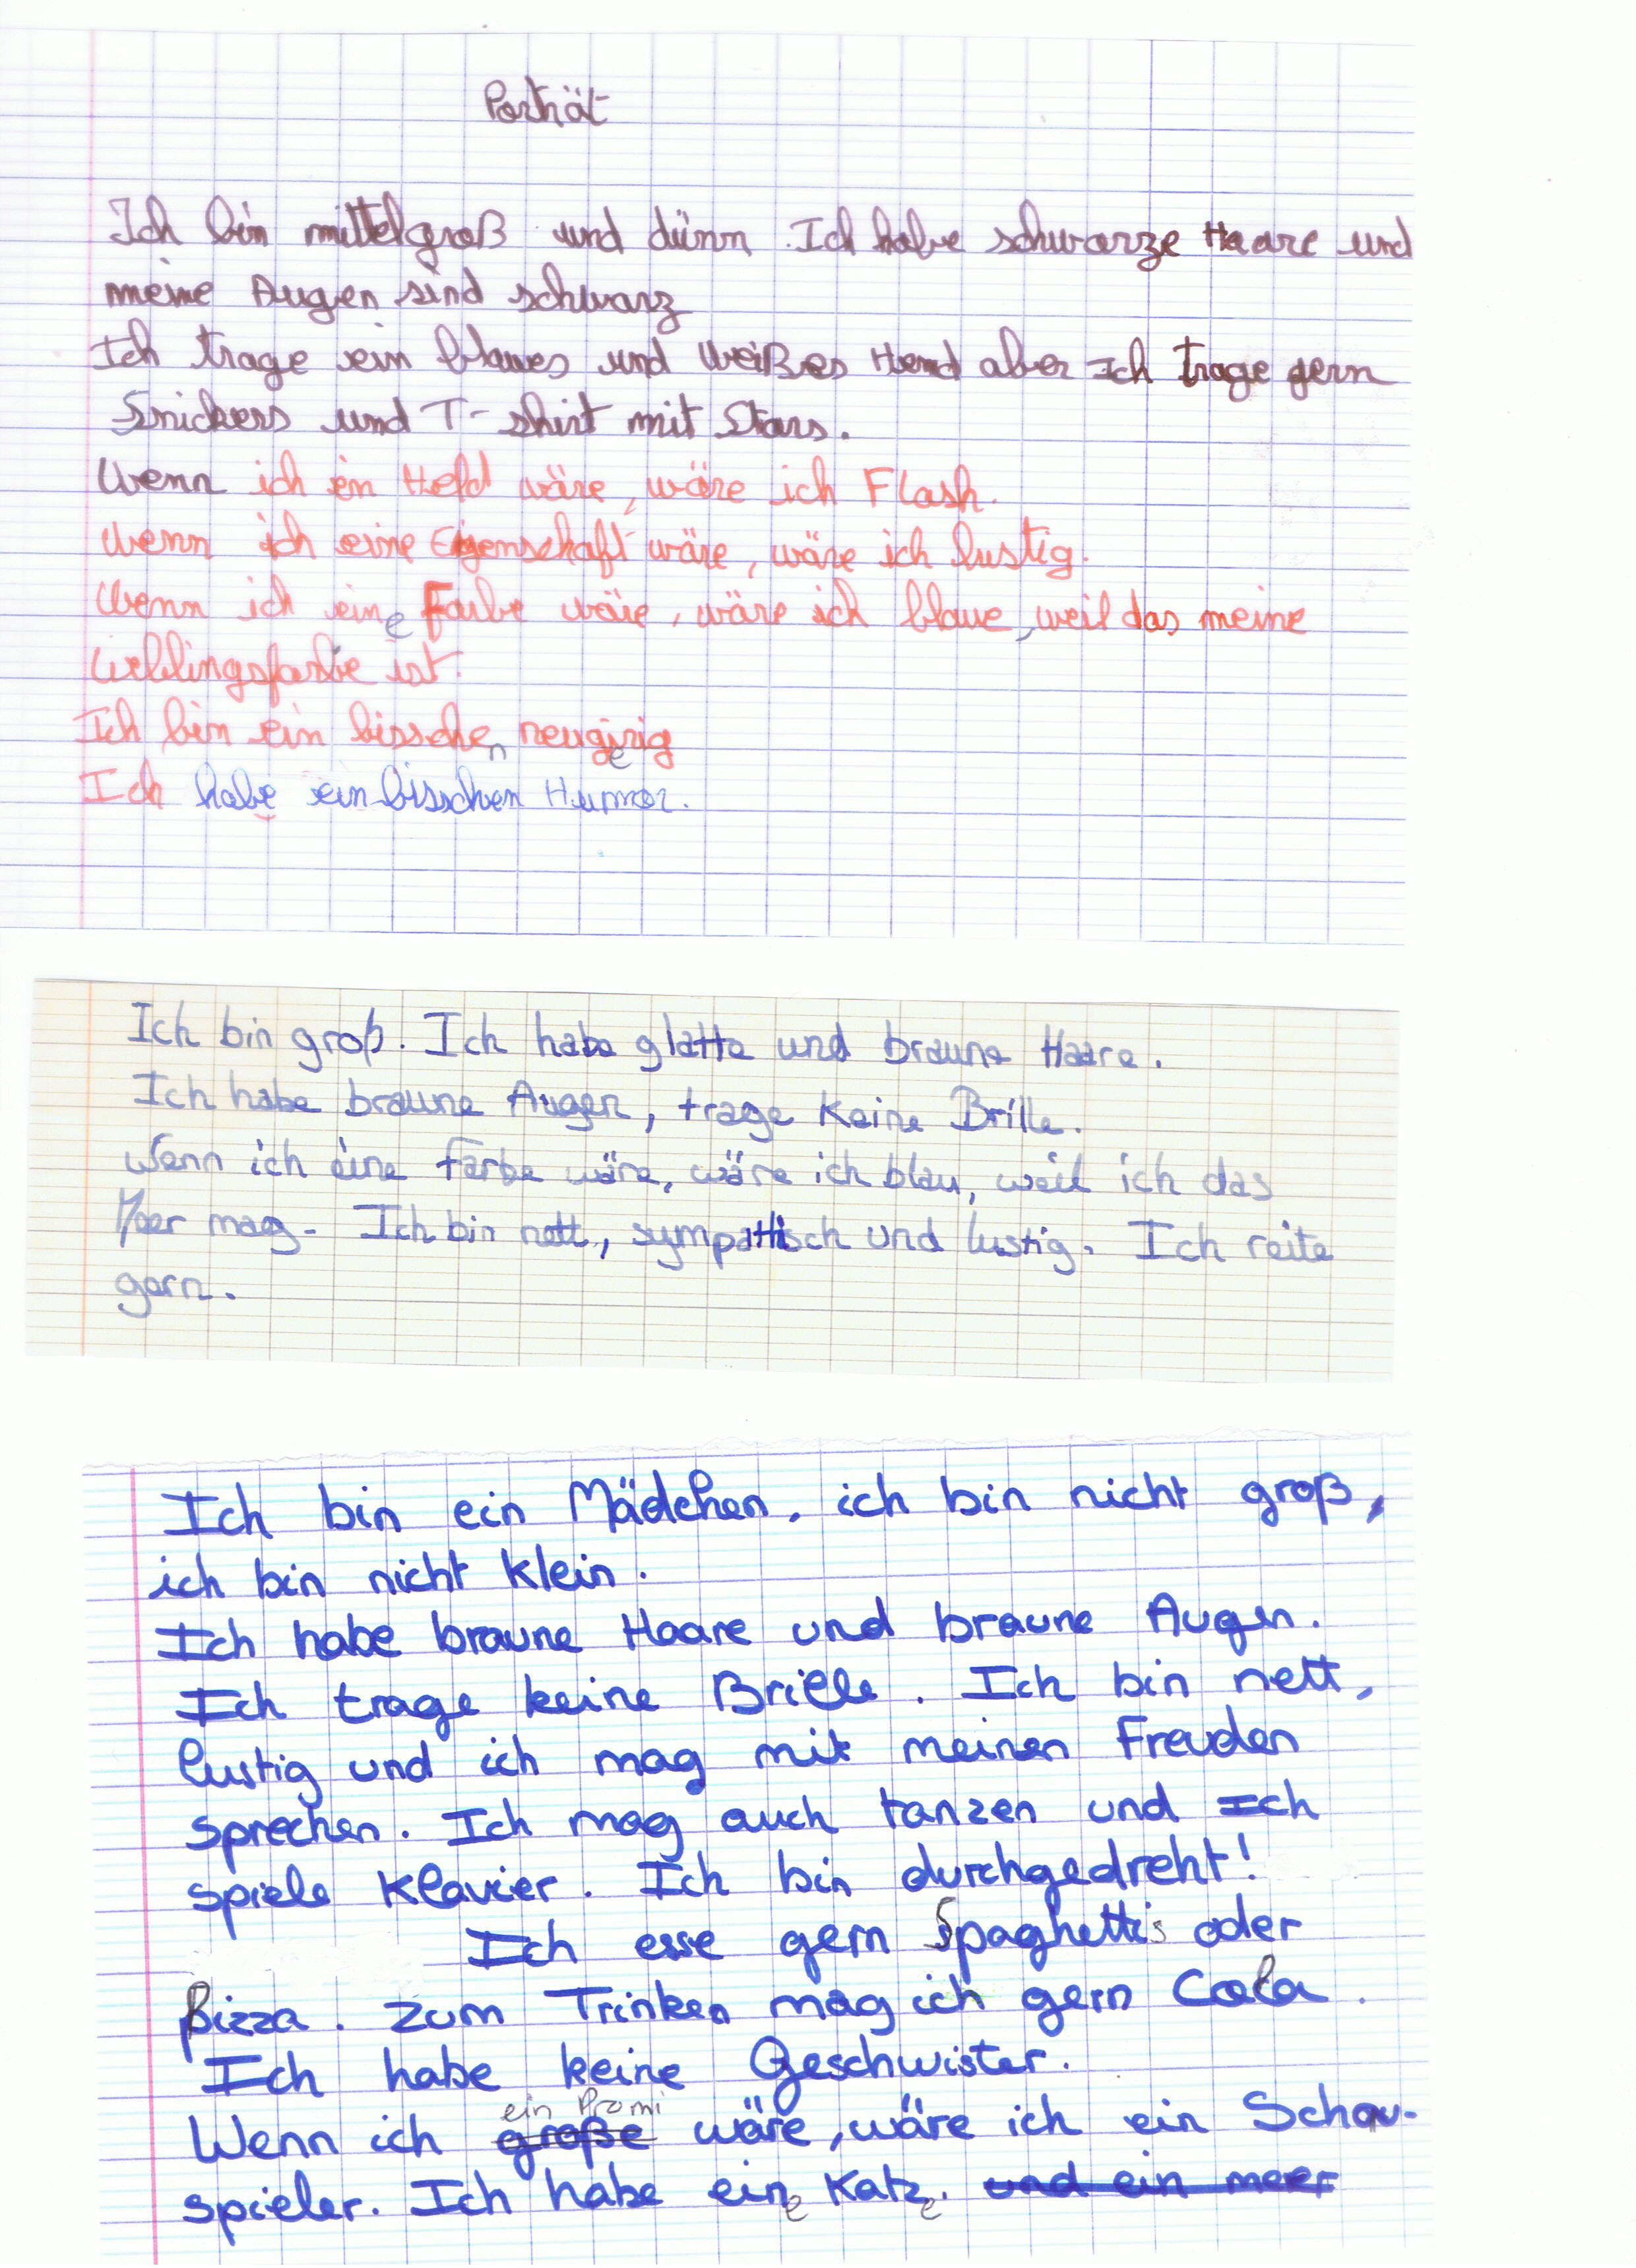 Porträt
Ich bin mittelgroß und dünn. Ich habe schwarze Haare und
meine Augen sind schwarz
Ich trage ein blaues und weißes Hemd aber Ich trage gern
Snickers und T-shirt mit Stars.
Wenn ich ein Held wäre, wäre ich Flash.
Wenn ich eine Eigenschaft wäre, wäre ich lustig.
Wenn ich eine Farbe wäre, wäre ich blaue, weil das meine
Lieblingsfarbe ist.
Ich bin ein bisschen neugierig
Ich habe ein bisschen Humor.
Ich bin groß. Ich habe glatte und braune Haare.
Ich habe braune Augen, trage keine Brille.
Wenn ich eine Farbe wäre, wäre ich blau, weil ich das
Meer mag. Ich bin nett, sympathisch und lustig. Ich reite
gern.
Ich bin ein Mädchen, ich bin nicht groß,
ich bin nicht klein.
Ich habe braune Haare und braune Augen.
Ich trage keine Brille. Ich bin nett,
lustig und ich mag mit meinen Freuden
sprechen. Ich mag auch tanzen und Ich
spiele Klavier. Ich bin durchgedreht!
Ich esse gern Spaghettis oder
Pizza. Zum Trinken mag ich gern Cola.
Ich habe keine Geschwister.
Wenn ich große ein Promi wäre, wäre ich ein Schau-
spieler. Ich habe eine Katze. und ein meer